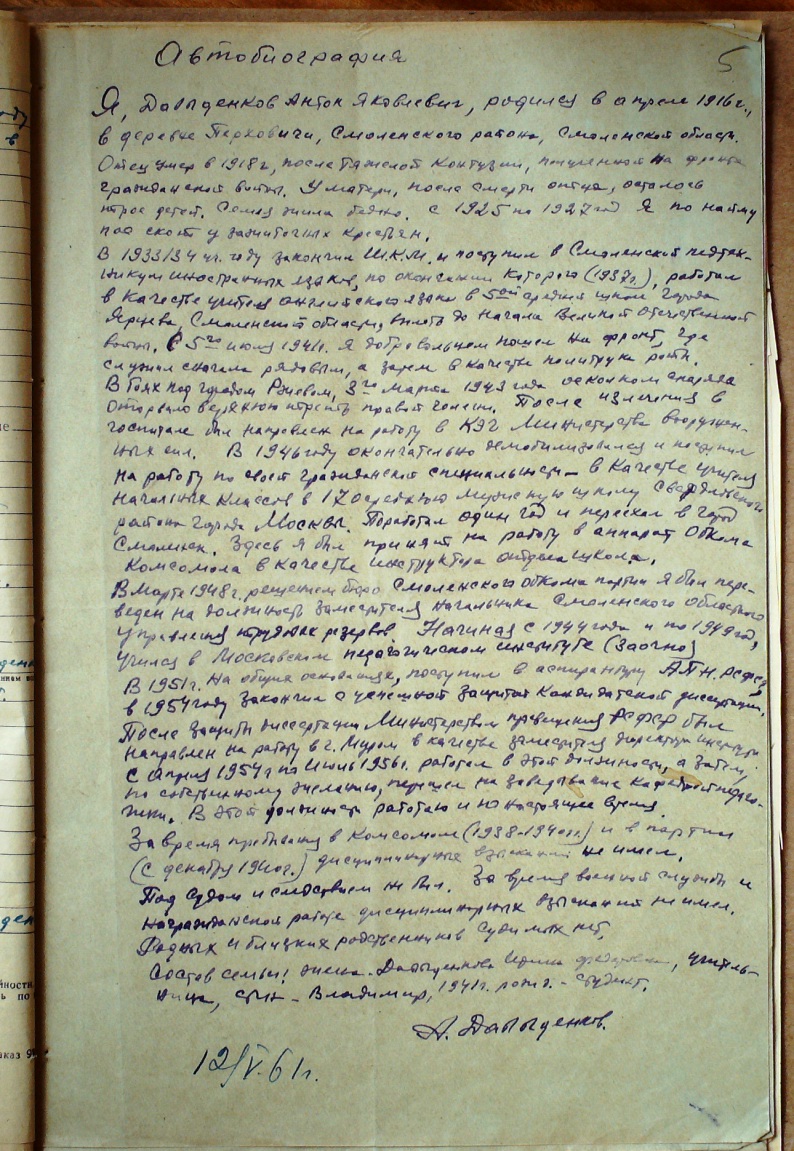 5
Автобиография
Я, Давыденков Антон Яковлевич, родился в апреле 1916 г.,
в деревне Перховичи, Смоленского района, Смоленской области.
Отец умер в 1918 г, после тяжелой контузии, полученной на фронте
гражданской войны. У матери, после смерти отца, осталось
трое детей. Семья жила бедно. С 1925 по 1927 год я по найму
пас скот у зажиточных крестьян.
В 1933/34 уч. году закончил Ш.К.М. и поступил в Смоленский педтех-
никум иностранных языков, по окончании которого (1937г.), работал
в качестве учителя английского языка в 5ой средней школе города
Ярцева, Смоленской области, вплоть до начала Великой Отечественной
войны. С 5го июля 1941г. я добровольцем пошел на фронт, где
служил сначала рядовым, а затем в качестве политрука роты.
В боях под городом Ржевом, 3го марта 1943 года осколком снаряда
оторвало верхнюю треть правой голени. После излечения в
госпитале был направлен на работу в КЭЧ Министерства вооружен-
ных сил. В 1946 году окончательно демобилизовался и поступил
на работу по своей гражданской специальности - в качестве учителя
начальных классов в 170 среднюю мужскую школу Свердловского
района города Москвы. Поработал один год и переехал в город
Смоленск. Здесь я был принят на работу в аппарат Обкома
Комсомола в качестве инструктора отдела школ.
В Марте 1948 г. решением бюро Смоленского обкома партии я был пере-
веден на должность заместителя начальника Смоленского областного
управления трудовых резервов. Начиная с 1944 года и по 1949 год,
учился в Московском педагогическом институте (заочно)
В 1951г. на общих основаниях, поступил в аспирантуру АПН РСФСР,
в 1954 году закончил с успешной защитой кандидатской диссертации.
После защиты диссертации Министерством просвещения РСФСР был
направлен на работу в г. Муром в качестве заместителя директора института
С апреля 1954 г по июль 1956 г. работал в этой должности, а затем,
по собственному желанию, перешел на заведывание кафедрой педаго-
гики. В этой должности работаю и по настоящее время.
За время пребывания в Комсомоле (1938-1940 гг.) и в партии
(с декабря 1940г.) дисциплинарных взысканий не имел.
Под судом и следствием не был. За время военной службы и
на гражданской работе дисциплинарных взысканий не имел.
Родных и близких родственников судимых нет.
Состав семьи: жена - Давыденкова Ирина, учитель-
ница, сын - Владимир, 1941 г. рожд. - студент.
А. Давыденков.
12/V.61г.